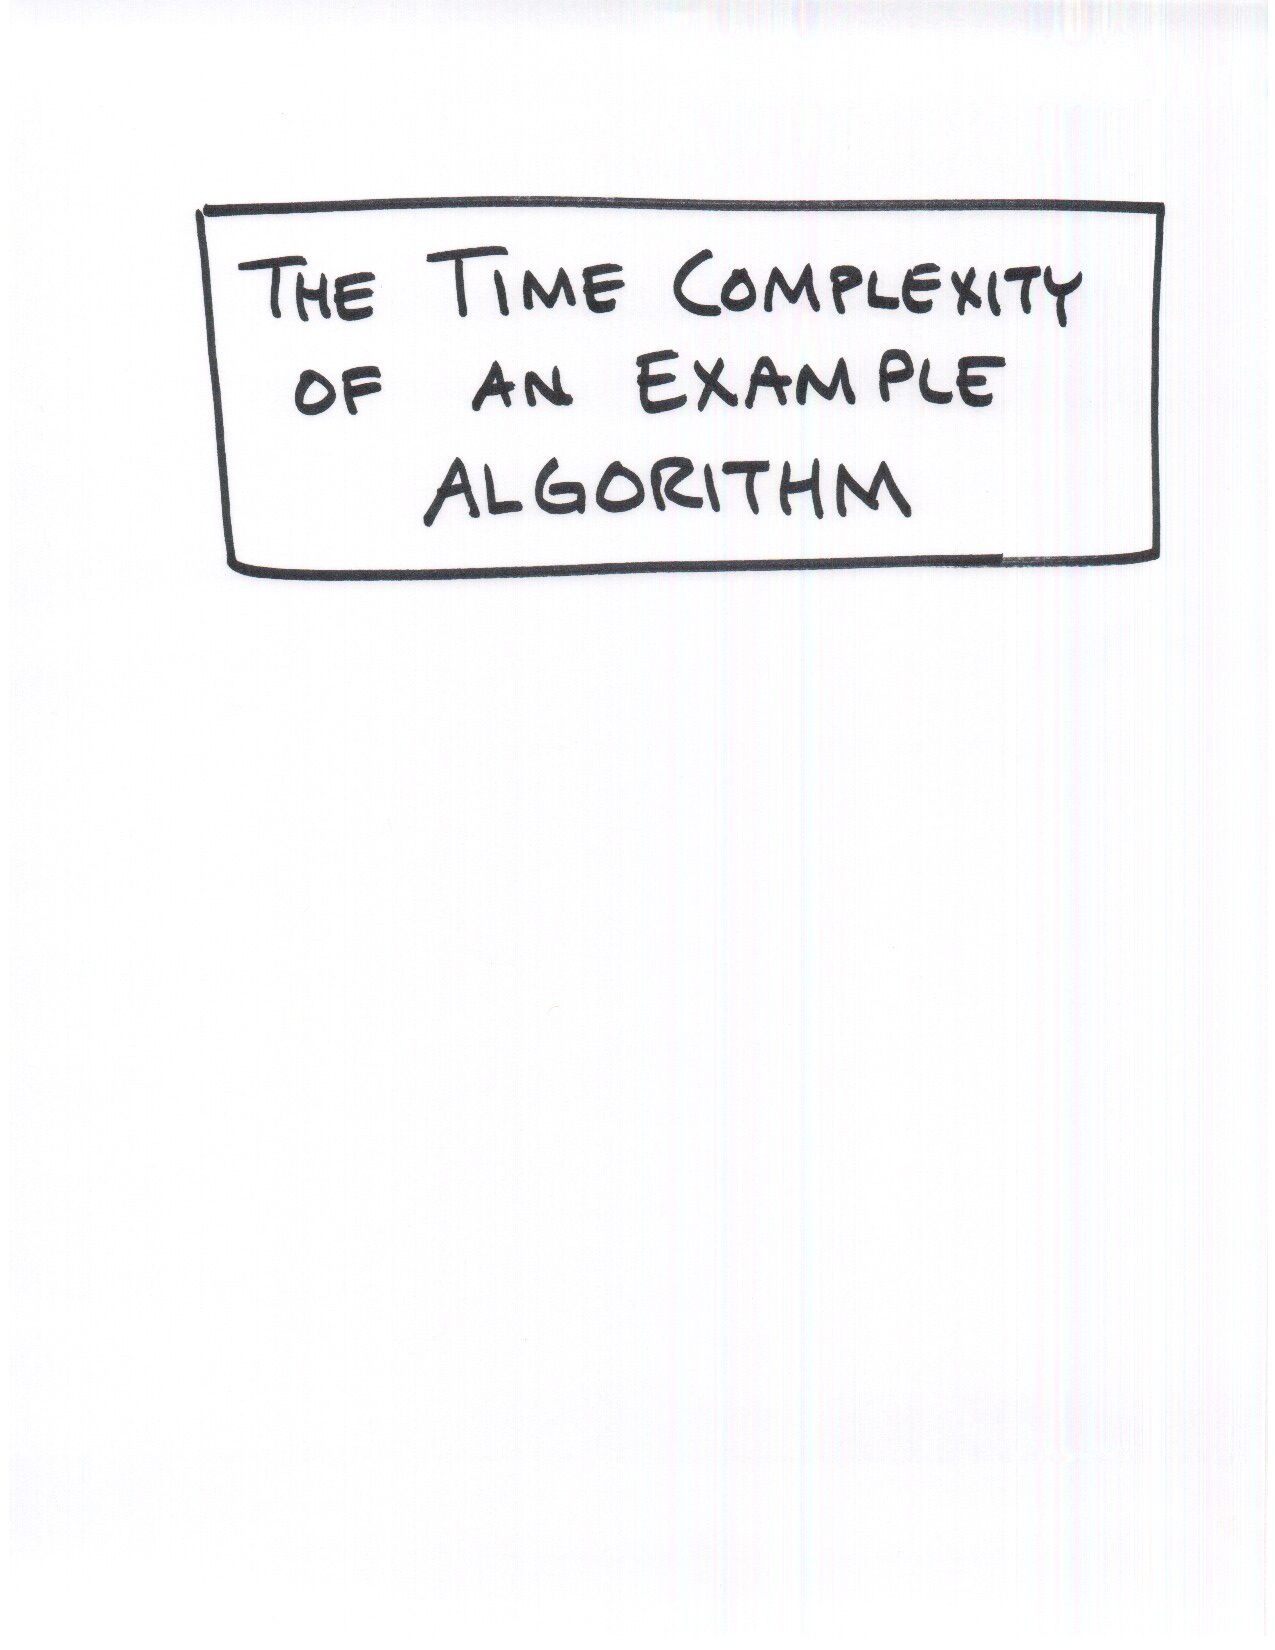 THE TIME COMPLEXITY
OF AN EXAMPLE
ALGORITHM